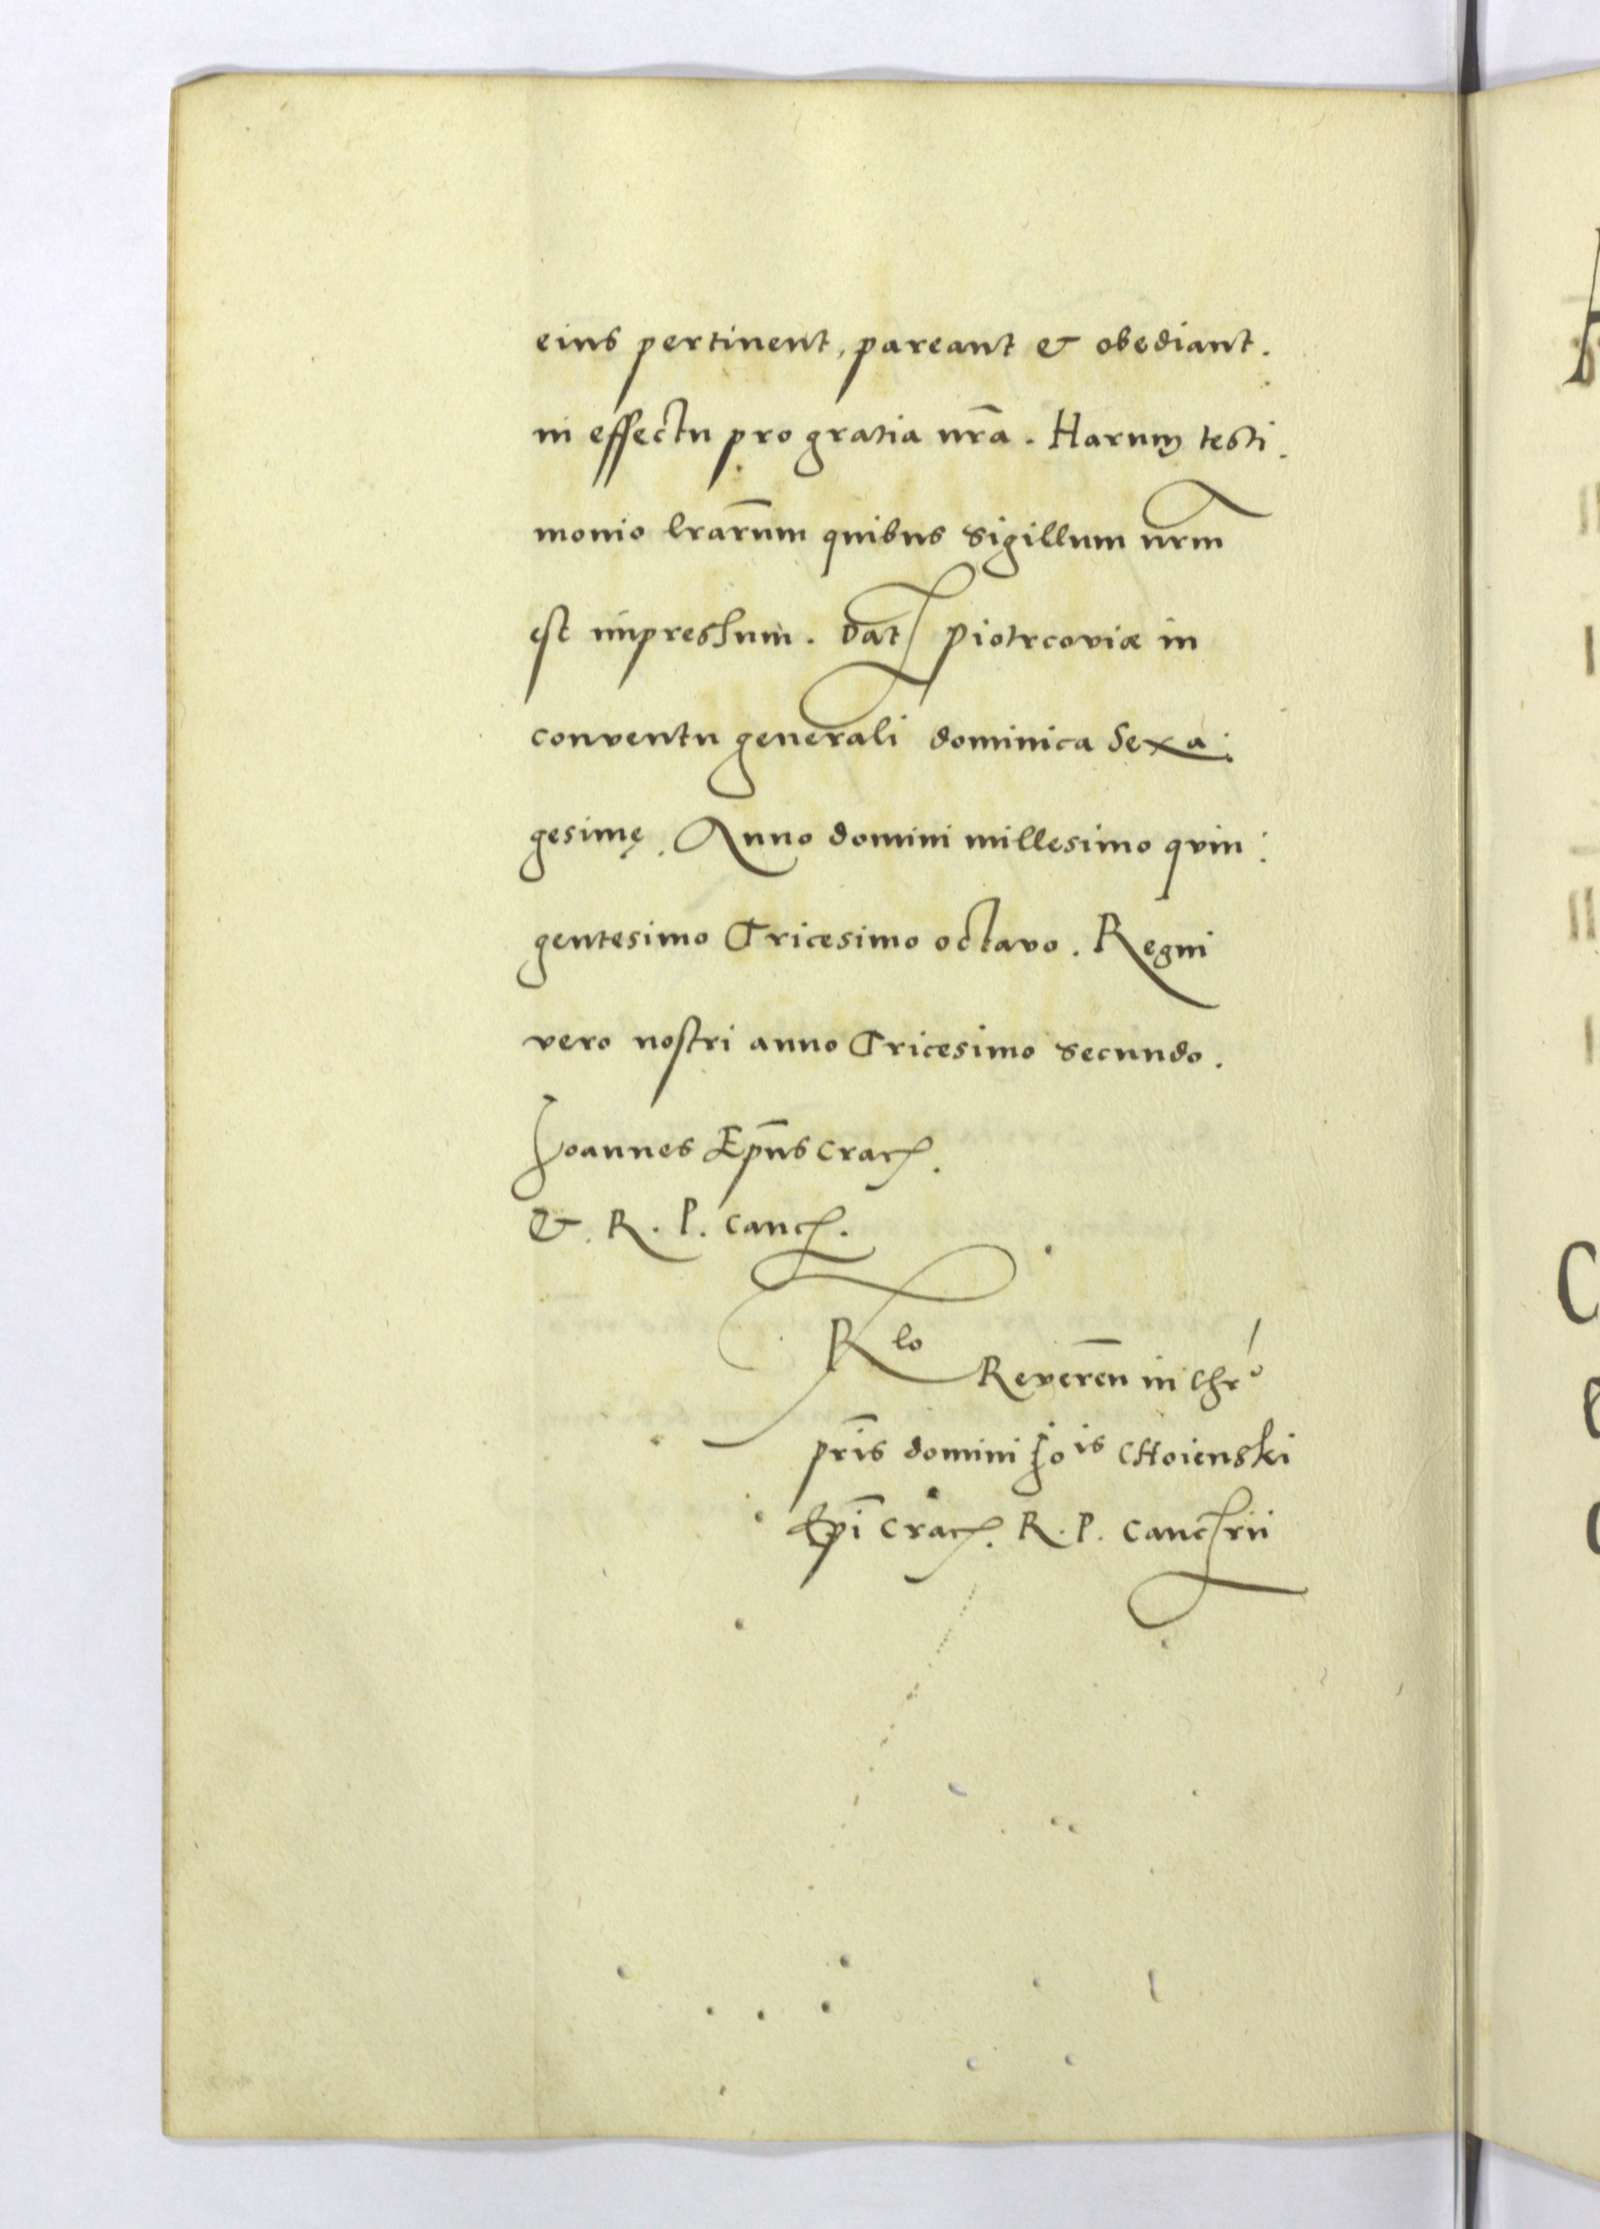 eius pertinent, pareant & obediant.
in effectu pro gratia nr̃a. Harum testi.
monio lrar̃um quibus sigillum nrm̃
est impressum. Dat Piotrcoviæ in
conventu generali dominica Sexa:
gesimę. Anno domini millesimo quin:
gentesimo Tricesimo octavo. Regni
vero nostri anno Tricesimo secundo.
Joannes Ep̃us Crac.
&. R. P. Canc.
Rlo
Reveren̄ in Chrº
pr̃is domini Jois CHoienski
Ep̃i Crac. R. P. Cancrii